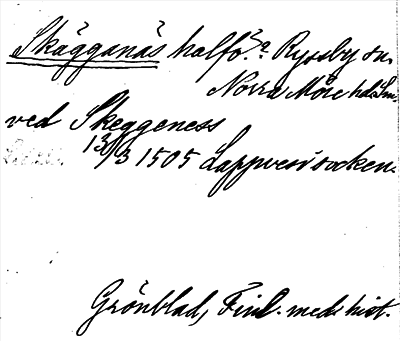 Skägganäs halfö? Ryssby sn.
Norra Möre hd. Sm.
ved Skeggeness
13/3 1505 Lappvesi socken.
Grönblad, Finl. med. hist.